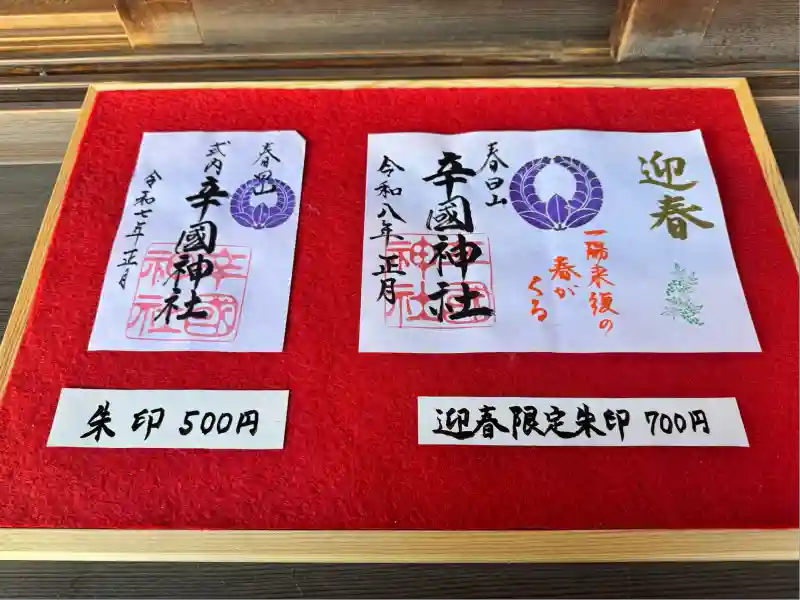 春日山
式内 辛國神社
令和七年 正月
辛國
神社
迎春
一陽来復の
春が
くる
春日山
辛國神社
令和八年 正月
辛國
神社
朱印 500円
迎春限定朱印 700円